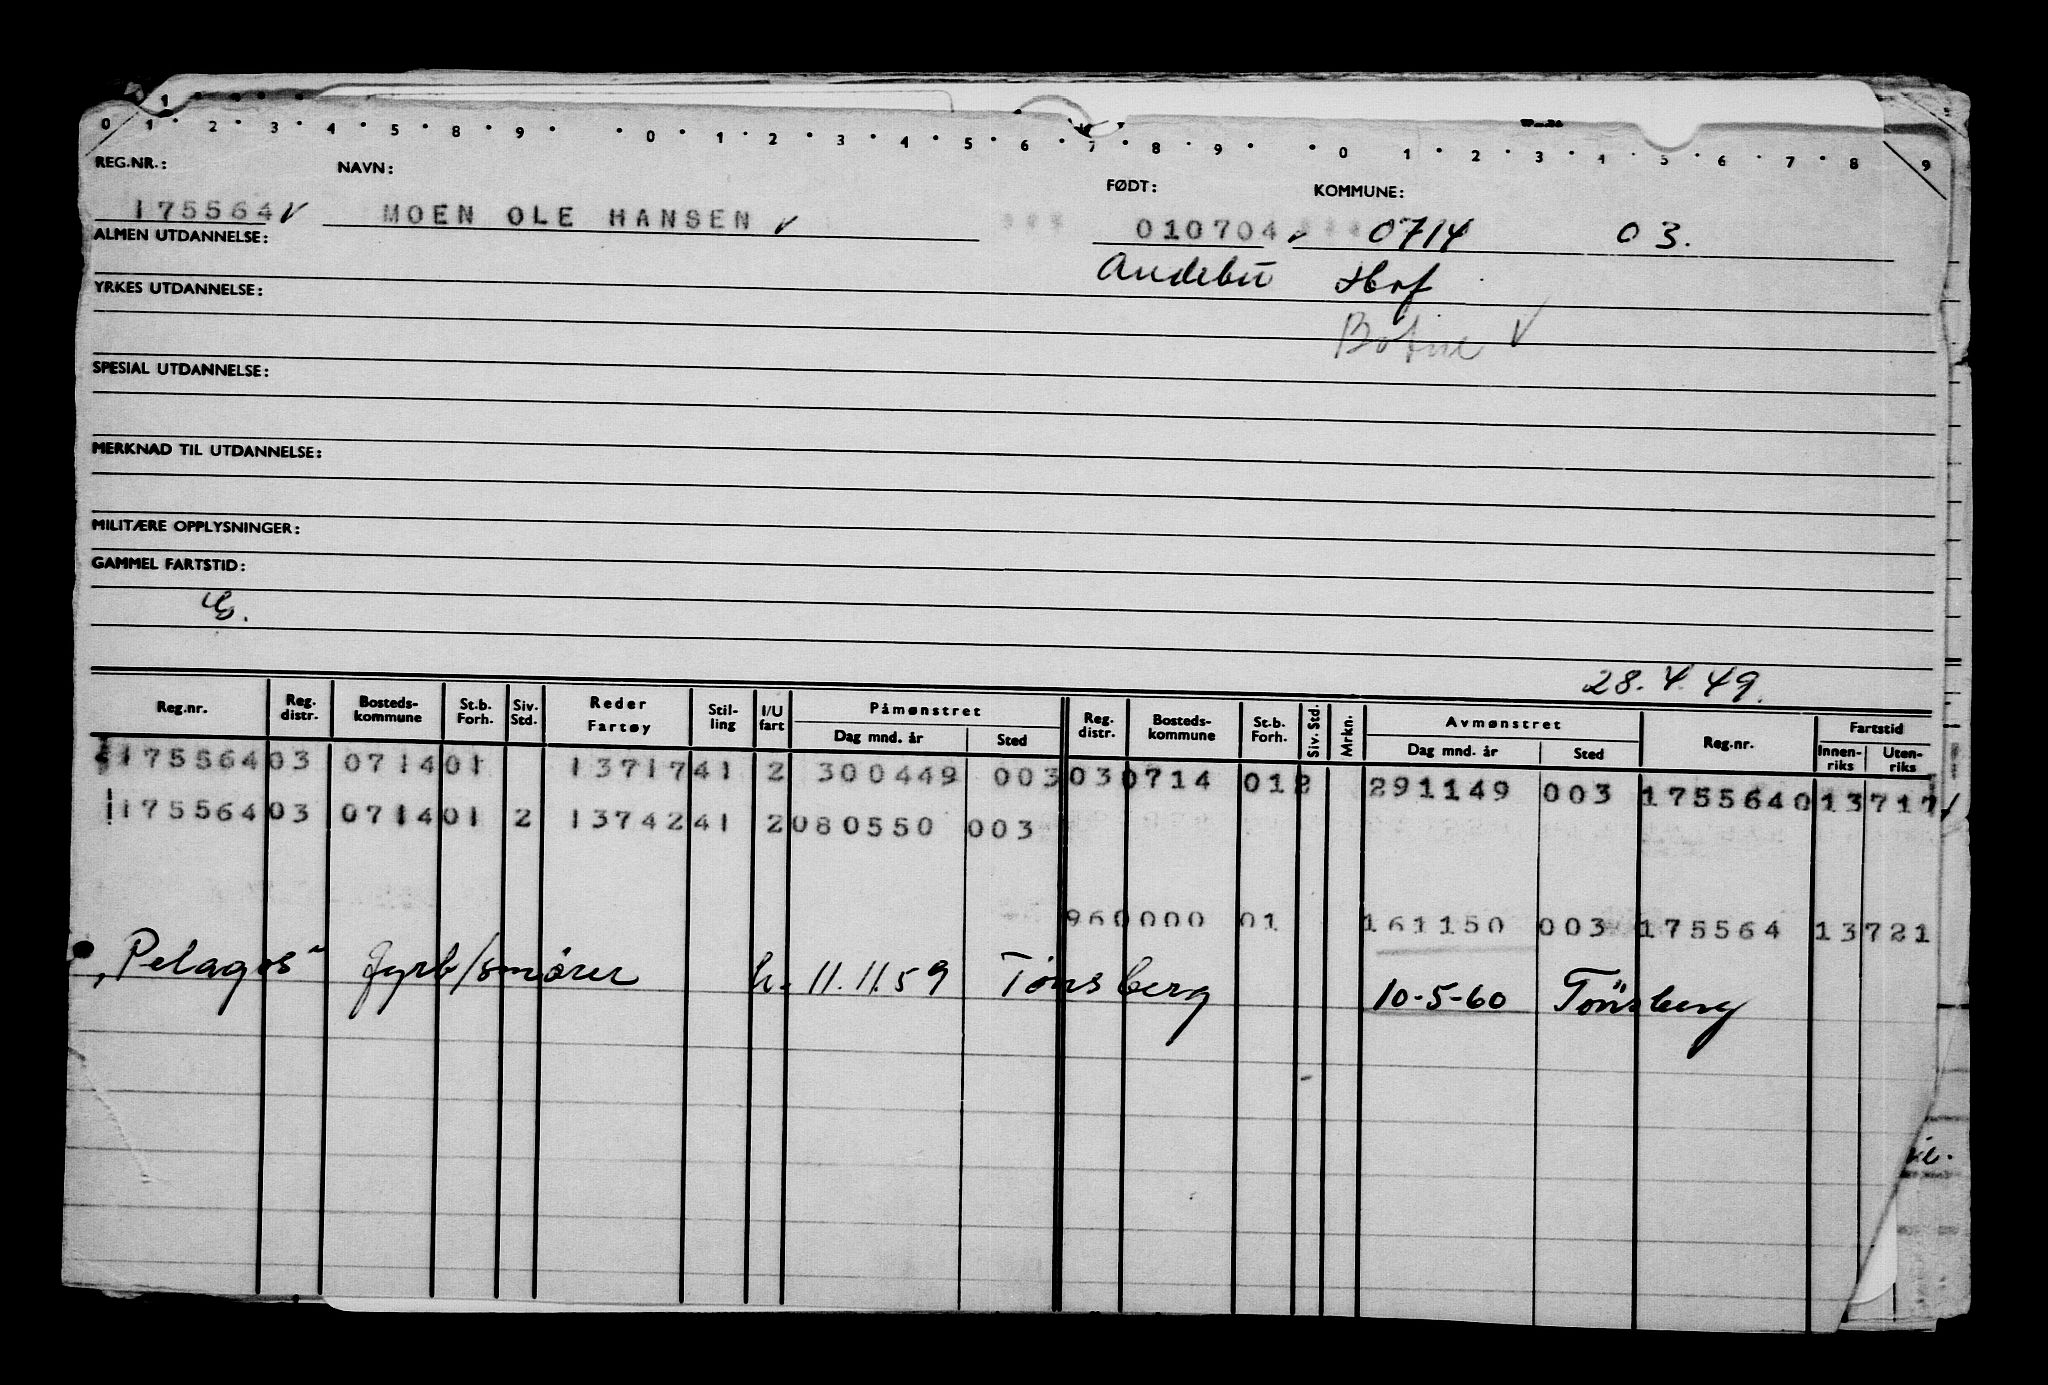 0 1 2 3 4 5 8 9 0 1 2 3 4 5 6 7 8 9 0 1 2 3 4 5 6 7 8 9
REG.NR.: NAVN: FØDT: KOMMUNE:
175564 MOEN OLE HANSEN 010704 0714 03.
ALMEN UTDANNELSE: Andebu Hof
YRKES UTDANNELSE: Botne
SPESIAL UTDANNELSE:
MERKNAD TIL UTDANNELSE:
MILITÆRE OPPLYSNINGER:
GAMMEL FARTSTID:
28.4.49.
Reg.nr. Reg. distr. Bosteds- kommune St.b. Forh. Siv. Std. Reder Fartøy Stil- ling I/U fart Påmønstret Dag mnd. år Sted Reg. distr. Bosteds- kommune St.b. Forh. Siv. Std. Mrkn. Avmønstret Dag mnd. år Sted Reg.nr. Fartstid Innen- riks Uten- riks
175564 03 0714 01 13717 41 2 300449 003 03 0714 01 2 291149 003 175564 0 13 717
175564 03 0714 01 2 13742 41 2 080550 003
96 0000 01 161150 003 175564 13 721
"Pelagos" fyrb/smører u. 11.11.59 Tønsberg 10-5-60 Tönsberg